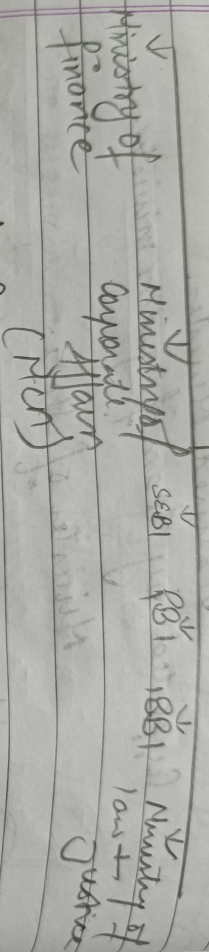 Ministry of
finance
Ministry of
corporate
Affair
(MCA)
SEBI
RBI
IBBI
Ministry of
law +
Justice